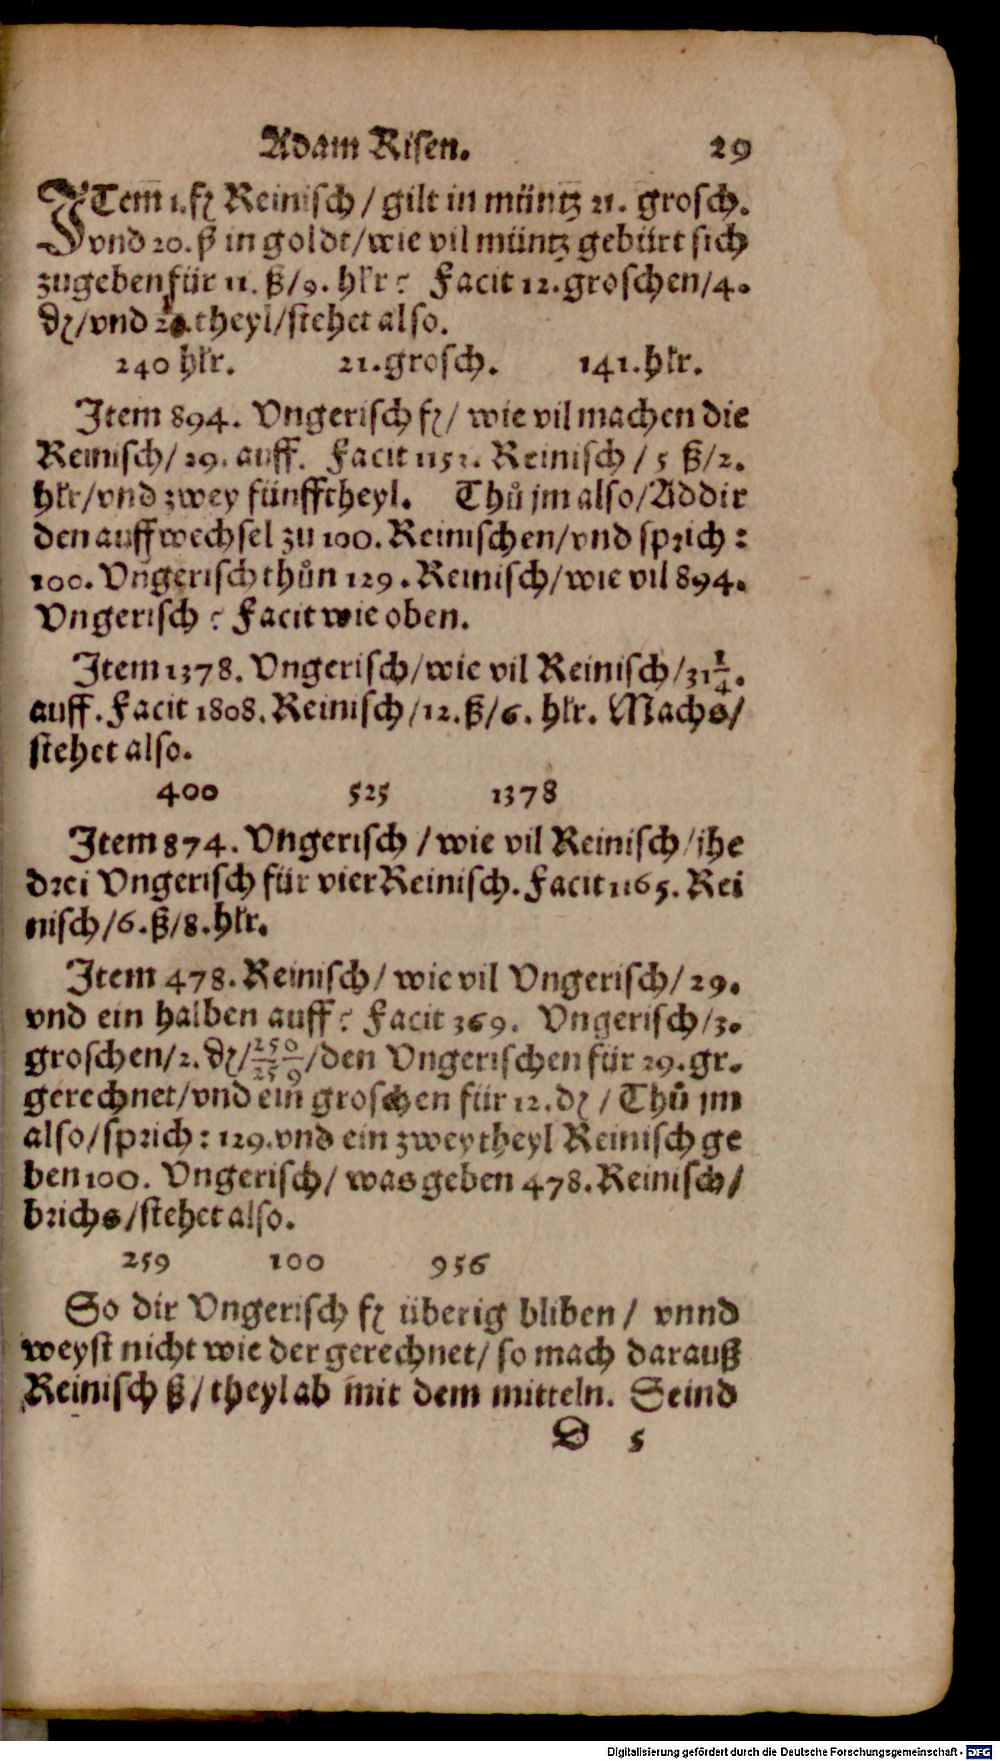 Adam Risen. 29
ITem 1. fl Reinisch / gilt in müntz 21. grosch.
vnd 20. ß in goldt/wie vil müntz gebürt sich
zugeben für 11. ß/9. hlr? Facit 12. groschen/4.
d/vnd theyl/stehet also.
240 hlr. 21. grosch. 141. hlr.
Item 894. Vngerisch fl/ wie vil machen die
Reinisch/ 29. auff. Facit 1153. Reinisch / 5 ß/2.
hlr/vnd zwey fünfftheyl. Thů jm also/Addir
den auffwechsel zu 100. Reinischen/vnd sprich:
100. Vngerisch thůn 129. Reinisch/wie vil 894.
Vngerisch? Facit wie oben.
Item 1378. Vngerisch/wie vil Reinisch/31 1/4.
auff. Facit 1808. Reinisch/12. ß/6. hlr. Machs/
stehet also.
400 525 1378
Item 874. Vngerisch /wie vil Reinisch/jhe
drei Vngerisch für vier Reinisch. Facit 1165. Rei
nisch/6. ß/8. hlr.
Item 478. Reinisch/ wie vil Vngerisch/ 29.
vnd ein halben auff? Facit 369. Vngerisch/3.
groschen/2. d/ 250/259 /den Vngerischen für 29. gr.
gerechnet/vnd ein groschen für 12. d / Thů jm
also/sprich: 129. vnd ein zweytheyl Reinisch ge
ben 100. Vngerisch/ was geben 478. Reinisch/
brichs/stehet also.
259 100 956
So dir Vngerisch fl überig bliben / vnnd
weyst nicht wie der gerechnet/ so mach darauß
Reinisch ß/ theyl ab mit dem mitteln. Seind
D 5
Digitalisierung gefördert durch die Deutsche Forschungsgemeinschaft - DFG